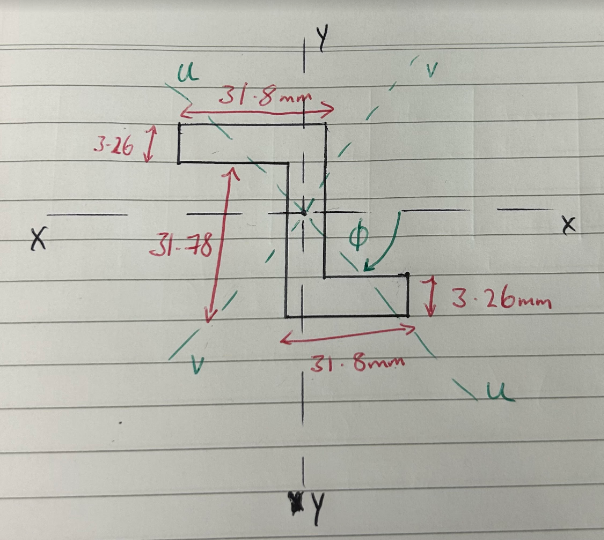 Y
u
v
31.8mm
3.26
X
31.78
ϕ
X
3.26mm
31.8mm
v
u
Y